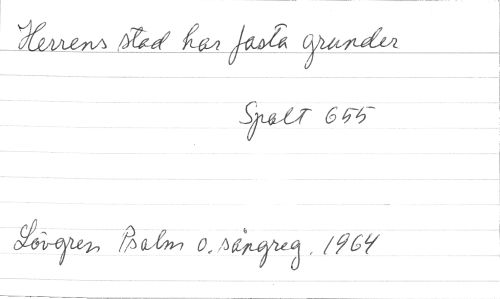 Herrens stad har fasta grunder
Spalt 655
Lövgren Psalm o. sångreg. 1964